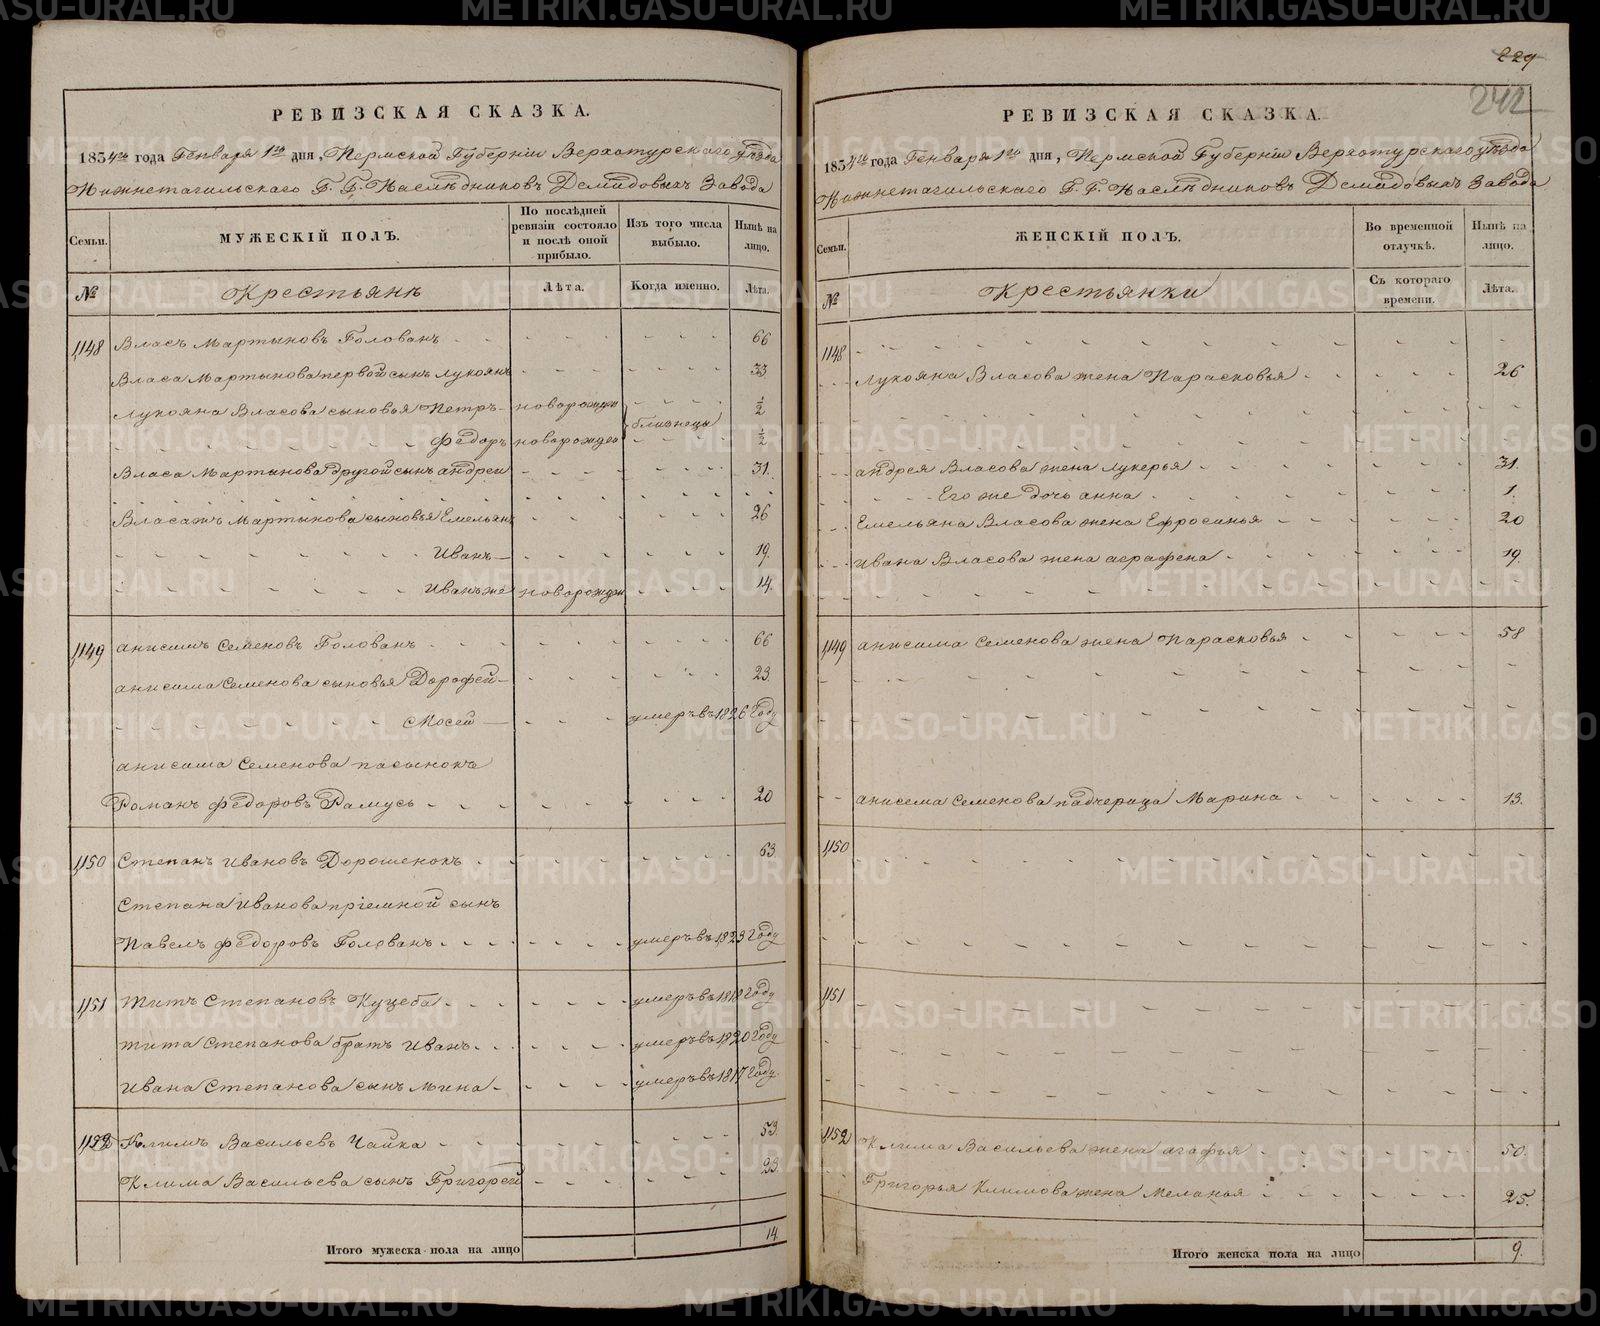 РЕВИЗСКАЯ СКАЗКА.
1834го года Генваря 1го дня, Пермской Губерніи Верхотурского уѣзда
Нижнетагильскаго Г. Г. Наслѣдниковъ Демидовыхъ Завода
Семьи.
МУЖЕСКІЙ ПОЛЪ.
По послѣдней ревизіи состояло и послѣ оной прибыло.
Изъ того числа выбыло.
Нынѣ на лицо.
№ Крестьянъ Лѣта. Когда именно. Лѣта.
1148 Власъ Мартыновъ Голованъ - - - 66
Власа Мартынова первой сынъ Лукоянъ - - - 33
Лукояна Власова сыновья Петръ - новорожден близнецы ½
Федоръ новорожден ½
Власа Мартынова другой сынъ Андреи - - - 31.
Власажъ Мартынова сыновья Емельянъ - - - 26
Иванъ - - - 19.
Иванъ же новорожден - - - 14.
1149 Анисимъ Семеновъ Голованъ - - - 66
Анисима Семенова сыновья Дорофей - - - 23.
Мосей - - - умеръ въ 1826 Году
Анисима Семенова пасынокъ
Романъ Федоровъ Рамусь - - - 20
1150 Степанъ Ивановъ Дорошенокъ - - - 63
Степана Иванова пріемной сынъ
Павелъ Федоровъ Голованъ - - - умеръ въ 1823 Году
1151 Титъ Степановъ Куцеба - - - умеръ въ 1818 Году
Тита Степанова братъ Иванъ - - - умеръ въ 1820 Году
Ивана Степанова сынъ Мина - - - умеръ въ 1817 Году.
1152 Климъ Васильевъ Чайка - - - 53.
Клима Васильева сынъ Григорей - - - 23.
Итого мужеска пола на лицо 14
229
242
РЕВИЗСКАЯ СКАЗКА.
1834го года Генваря 1го дня, Пермской Губерніи Верхотурскаго уѣзда
Нижнетагильскаго Г. Г. Наслѣдниковъ Демидовыхъ Завода
Семьи.
ЖЕНСКІЙ ПОЛЪ.
Во временной отлучкѣ.
Нынѣ на лицо.
№ Крестьянки Съ котораго времени. Лѣта.
1148
Лукояна Власова жена Парасковья - - - 26
Андрея Власова жена Лукерья - - - 31.
Его же дочь Анна - - - 1.
Емельяна Власова жена Ефросинья - - - 20
Ивана Власова жена Аграфена - - - 19.
1149 Анисима Семенова жена Парасковья - - - 58
Анисема Семенова падчерица Марина - - - 13.
1150
1151
1152 Клима Васильева жена Агафья - - - 50.
Григорья Климова жена Меланья - - - 25.
Итого женска пола на лицо 9.
METRIKI.GASO-URAL.RU